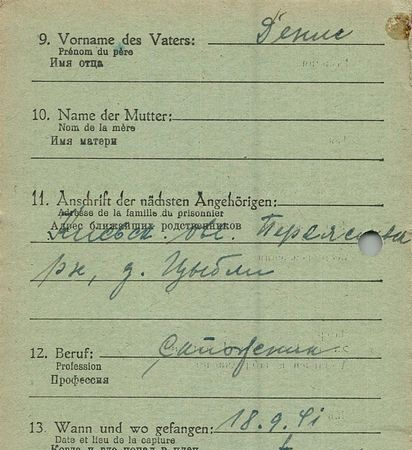 9. Vorname des Vaters: Денис
Prénom du père
Имя отца
10. Name der Mutter:
Nom de la mère
Имя матери
11. Anschrift der nächsten Angehörigen:
Adresse de la famille du prisonnier
Адрес ближайших родственников
Киевск. обл.
рн, д. Цыбли
12. Beruf: Сапожник
Profession
Профессия
13. Wann und wo gefangen: 18.9.41
Date et lieu de la capture
Когда и где попал в плен